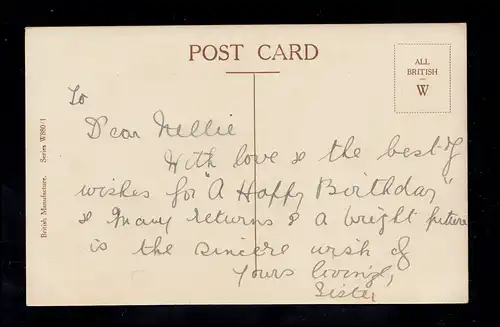 POST CARD
ALL
BRITISH
W
British Manufacture. Series W880/1
To
Dear Nellie
With love & the best of
wishes for "A Happy Birthday"
& many returns & a bright future
is the sincere wish of
Yours lovingly,
Sister